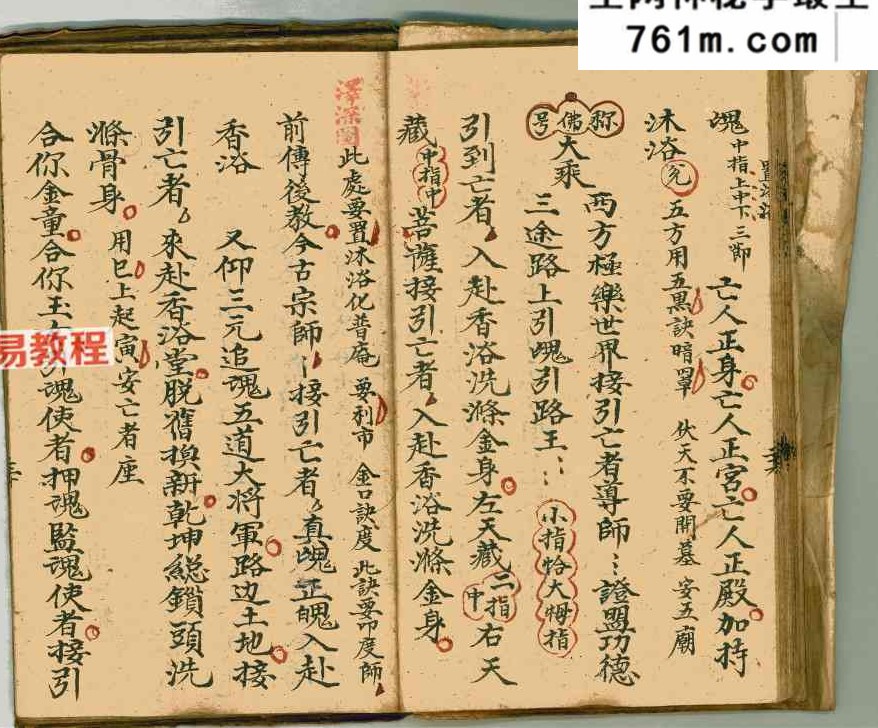 761m.com
魂 中指上中下三節 亡人正身亡人正宮亡人正殿加持
沐浴 五方用五黑訣暗罩 伏天不要開墓 安五廟
西方極樂世界接引亡者導師 證盟功德
称佛号 大乘
三途路上引魂引路王 小指恰大拇指
引到亡者入赴香浴洗滌金身左天藏 二指中 右天
藏 中指中 菩薩接引亡者入赴香浴洗滌金身
澤深
此處要置沐浴化普庵 要利市 金口訣度 此訣要叩度師
前傳後教今古宗師 接引亡者真魂正魄入赴
香浴 又仰三元追魂五道大將軍路边土地接
引亡者來赴香浴堂脱舊换新乾坤総鎖頭洗
滌骨身 用巳上起寅安亡者座
合你金童合你玉 魂使者押魂監魂使者接引
易教程